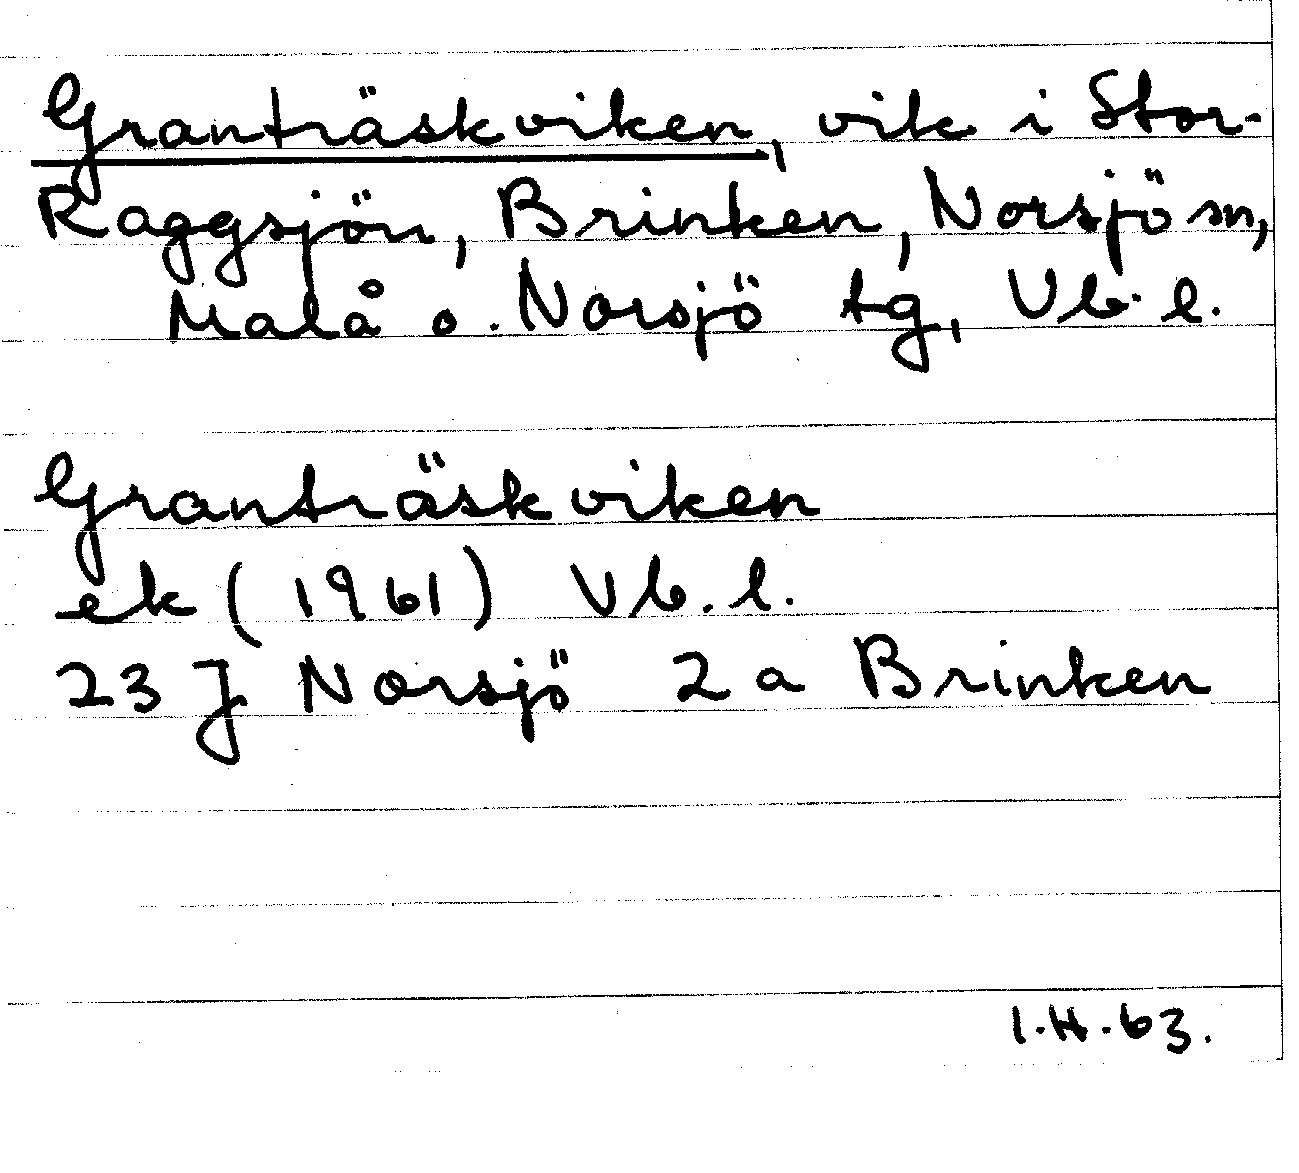 Granträskviken, vik i Stor-
Raggsjön, Brinken, Norsjö sn,
Malå o. Norsjö tg, Vb. l.
Granträskviken
ek (1961) Vb. l.
23 J Norsjö 2a Brinken
I.H.63.